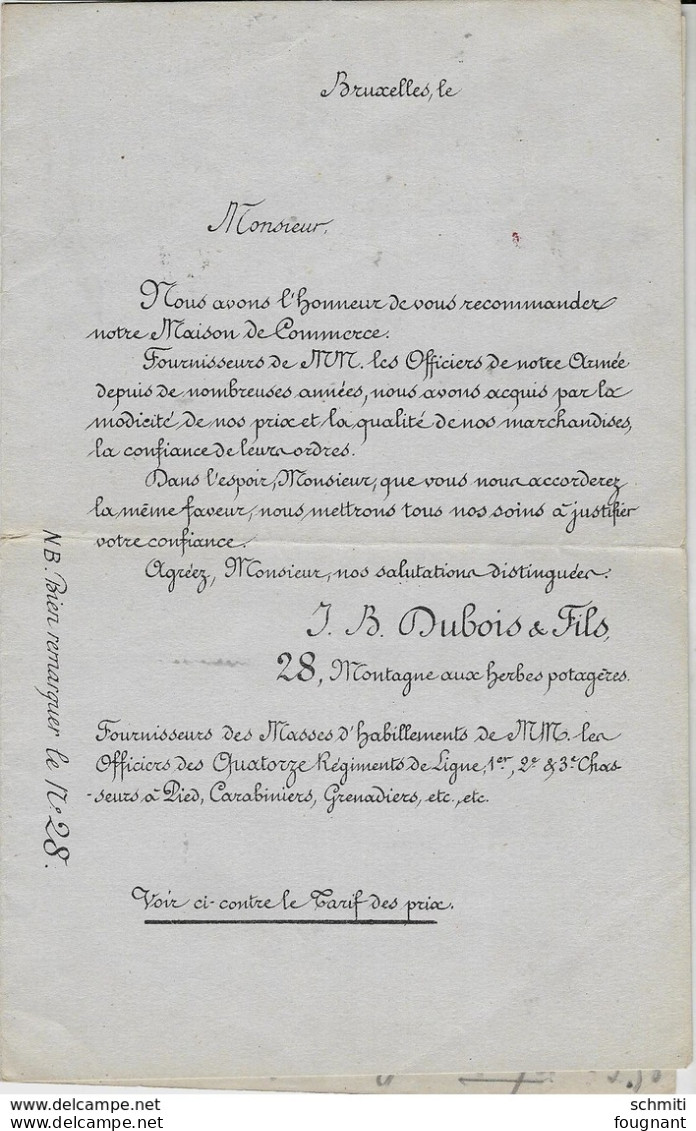 Bruxelles, le
Monsieur,
Nous avons l'honneur de vous recommander
notre Maison de Commerce.
Fournisseurs de MM. les Officiers de notre Armée
depuis de nombreuses années, nous avons acquis par la
modicité de nos prix et la qualité de nos marchandises,
la confiance de leurs ordres.
Dans l'espoir, Monsieur, que vous nous accorderez
la même faveur, nous mettrons tous nos soins à justifier
votre confiance.
Agréez, Monsieur, nos salutations distinguées.
J. B. Dubois & Fils,
28, Montagne aux herbes potagères.
Fournisseurs des Masses d'habillements de MM. les
Officiers des Quatorze Régiments de Ligne, 1er, 2e & 3e Chas-
-seurs à Pied, Carabiniers, Grenadiers, etc., etc.
Voir ci-contre le Tarif des prix.
NB. Bien remarquer le No 28.
schmiti
fougnant
https://www.delcampe.net
https://www.delcampe.net